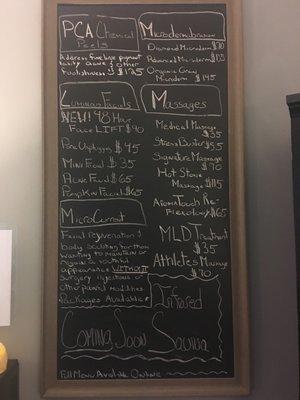 PCA Chemical
Peels
Address fine lines, pigment
acne & other
$125
Microdermabrasion
Diamond Microderm $70
Advanced Microderm
Organic Gray
Microderm $145
Luminum Facials
NEW! 48 Hour
Face LIFT $90
Pore Unplugging $45
Mini Facial $35
Acne Facial $65
Pumpkin Facial $65
Massages
Medical Massage
$35
Stress Buster $55
Signature Massage
$70
Hot Stone
Massage $115
AromaTouch Re-
Flexology $65
MLD Treatment
$35
Athletes Massage
$70
MicroCurrent
Facial rejuvenation &
body sculpting for those
wanting to maintain or
regain a youthful
appearance WITHOUT
surgery, injections or
other painful modalities
Packages Available!
Infrared
Coming Soon Sauna
Full Menu Available Online